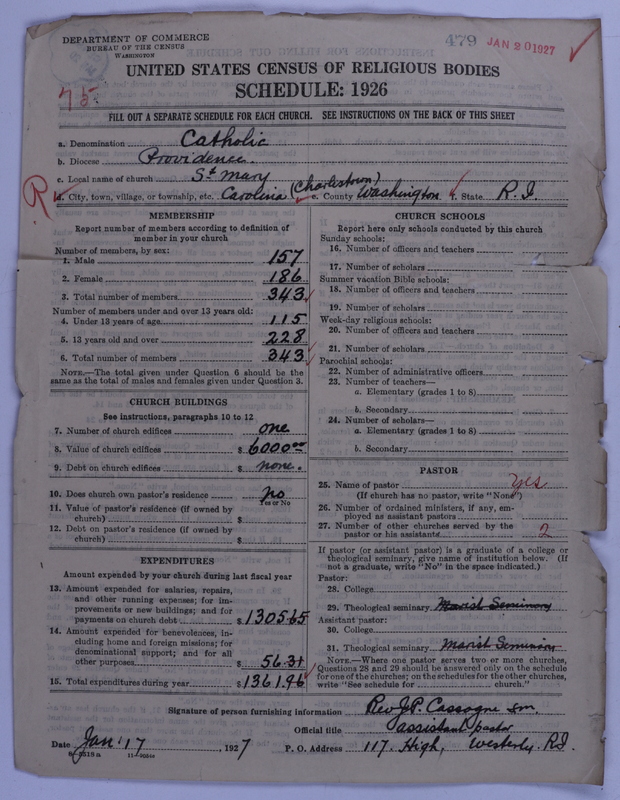 DEPARTMENT OF COMMERCE
BUREAU OF THE CENSUS
WASHINGTON
479 JAN 20 1927
75
UNITED STATES CENSUS OF RELIGIOUS BODIES
SCHEDULE: 1926
FILL OUT A SEPARATE SCHEDULE FOR EACH CHURCH. SEE INSTRUCTIONS ON THE BACK OF THIS SHEET
a. Denomination Catholic
b. Diocese Providence.
c. Local name of church St Mary
R d. City, town, village, or township, etc. Carolina (Charlestown) e. County Washington f. State R.I.
MEMBERSHIP
Report number of members according to definition of
member in your church
Number of members, by sex:
1. Male 157
2. Female 186
3. Total number of members 343
Number of members under and over 13 years old:
4. Under 13 years of age 115
5. 13 years old and over 228
6. Total number of members 343
NOTE.—The total given under Question 6 should be
same as the total of males and females given under Question 3.
CHURCH BUILDINGS
See instructions, paragraphs 10 to 12
7. Number of church edifices one
8. Value of church edifices $ 6000.00
9. Debt on church edifices $ none.
10. Does church own pastor's residence no
Yes or No
11. Value of pastor's residence (if owned by
church) $
12. Debt on pastor's residence (if owned by
church) $
EXPENDITURES
Amount expended by your church during last fiscal year
13. Amount expended for salaries, repairs,
and other running expenses; for im-
provements or new buildings; and for
payments on church debt $ 1305.65
14. Amount expended for benevolences, in-
cluding home and foreign missions; for
denominational support; and for all
other purposes $ 56.31
15. Total expenditures during year $ 1361.96
CHURCH SCHOOLS
Report here only schools conducted by this church
Sunday schools:
16. Number of officers and teachers
17. Number of scholars
Summer vacation Bible schools:
18. Number of officers and teachers
19. Number of scholars
Week-day religious schools:
20. Number of officers and teachers
21. Number of scholars
Parochial schools:
22. Number of administrative officers
23. Number of teachers—
a. Elementary (grades 1 to 8)
b. Secondary
24. Number of scholars—
a. Elementary (grades 1 to 8)
b. Secondary
PASTOR
25. Name of pastor yes
(If church has no pastor, write "None")
26. Number of ordained ministers, if any, em-
ployed as assistant pastors
27. Number of other churches served by the
pastor or his assistants 2
If pastor (or assistant pastor) is a graduate of a college or
theological seminary, give name of institution below. (If
not a graduate, write "No" in the space indicated.)
Pastor:
28. College
29. Theological seminary Marist Seminary
Assistant pastor:
30. College
31. Theological seminary Marist Seminary
NOTE.—Where one pastor serves two or more churches,
Questions 28 and 29 should be answered only on the schedule
for one of the churches; on the schedules for the other churches,
write "See schedule for church."
Signature of person furnishing information Rev J.P. Cassagne sm.
Official title assistant pastor
Date Jan 17, 1927 P. O. Address 117 High, Westerly R.I.